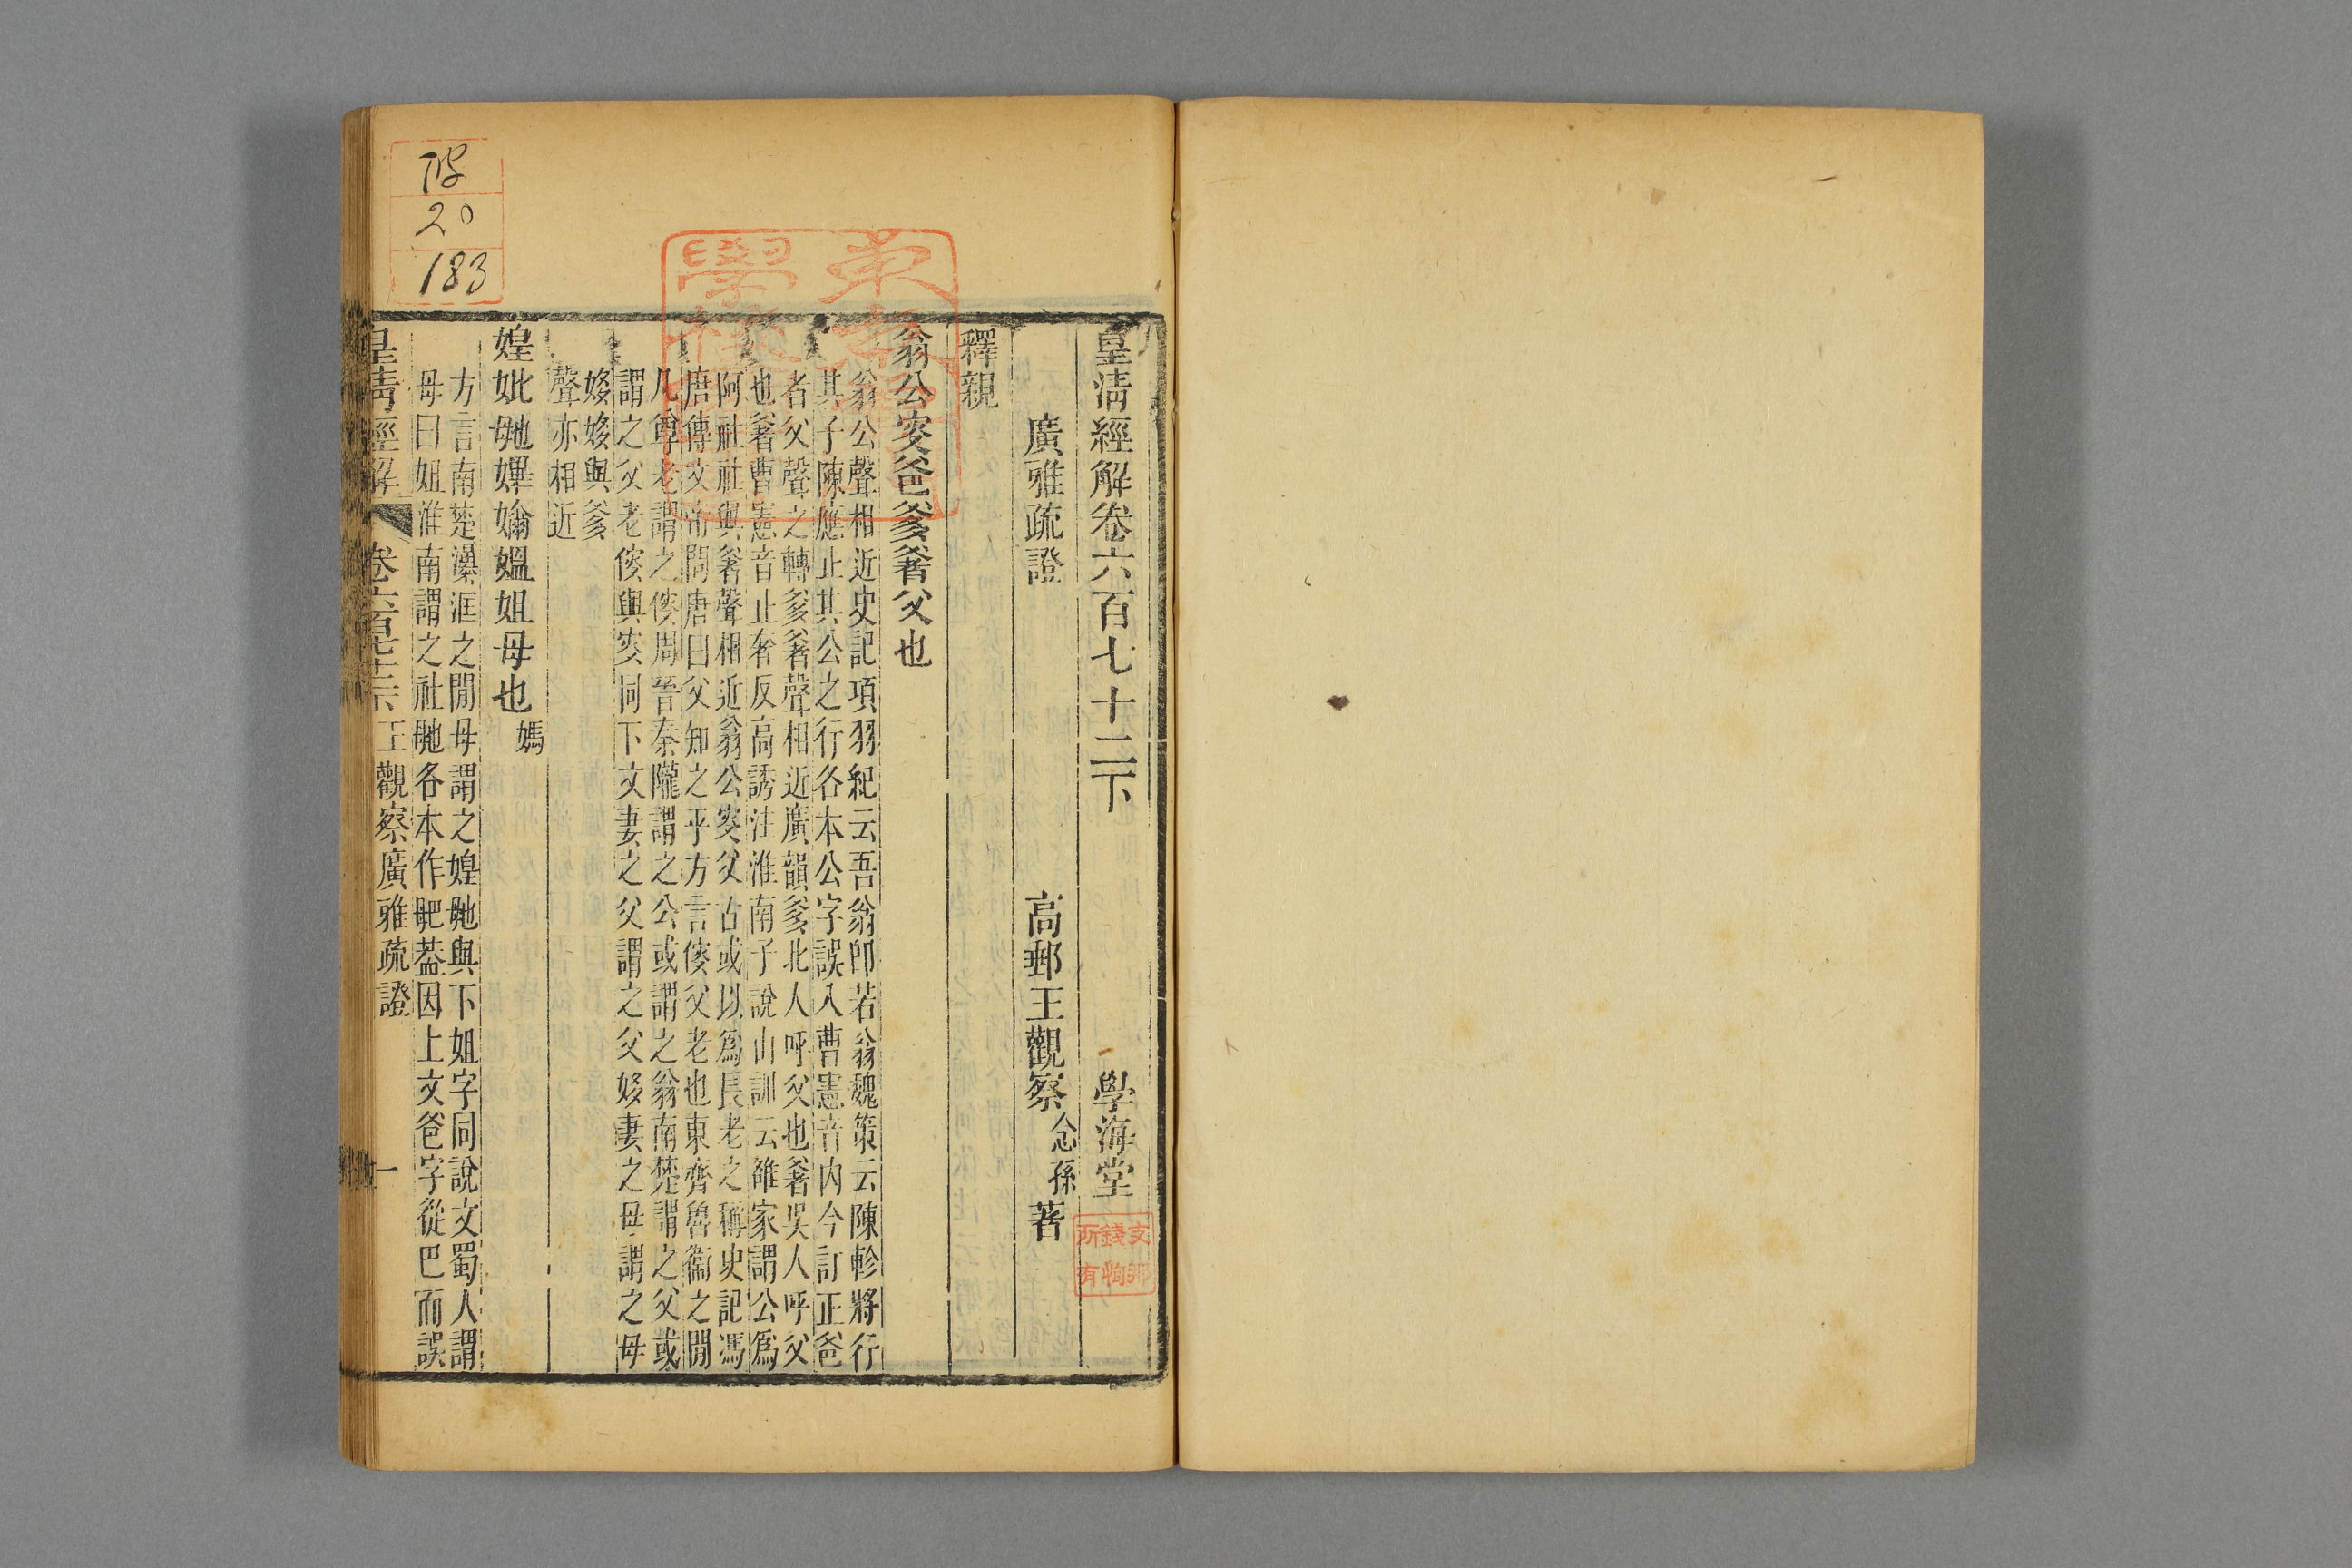 皇清經解卷六百七十二下
學海堂
廣雅疏證
高郵王觀察念孫著
釋親
翁公叜爸爹㸙父也
翁公聲相近史記項羽紀云吾翁卽若翁魏策云陳軫將行
其子陳應止其公之行各本公字誤入曹憲音內今訂正爸
者父聲之轉爹㸙聲相近廣韻爹北人呼父也㸙吳人呼父
也㸙曹憲音止奢反高誘注淮南子說山訓云雒家謂公爲
阿社社與㸙聲相近翁公叜父古或以爲長老之稱史記馮
唐傳文帝問唐曰父知之乎方言傁父老也東齊魯衞之閒
凡尊老謂之傁周晉秦隴謂之公或謂之翁南楚謂之父或
謂之父老傁與叜同下文妻之父謂之父姼妻之母謂之母
姼姼與爹
聲亦相近
媓妣毑㜙㜲媼姐母也
媽
方言南楚瀑洭之閒母謂之媓毑與下姐字同說文蜀人謂
母曰姐淮南謂之社毑各本作䎱葢因上文爸字從巴而誤
皇清經解
卷六百七十二下
王觀察廣雅疏證
一
20
183
支那
錢恂
所有